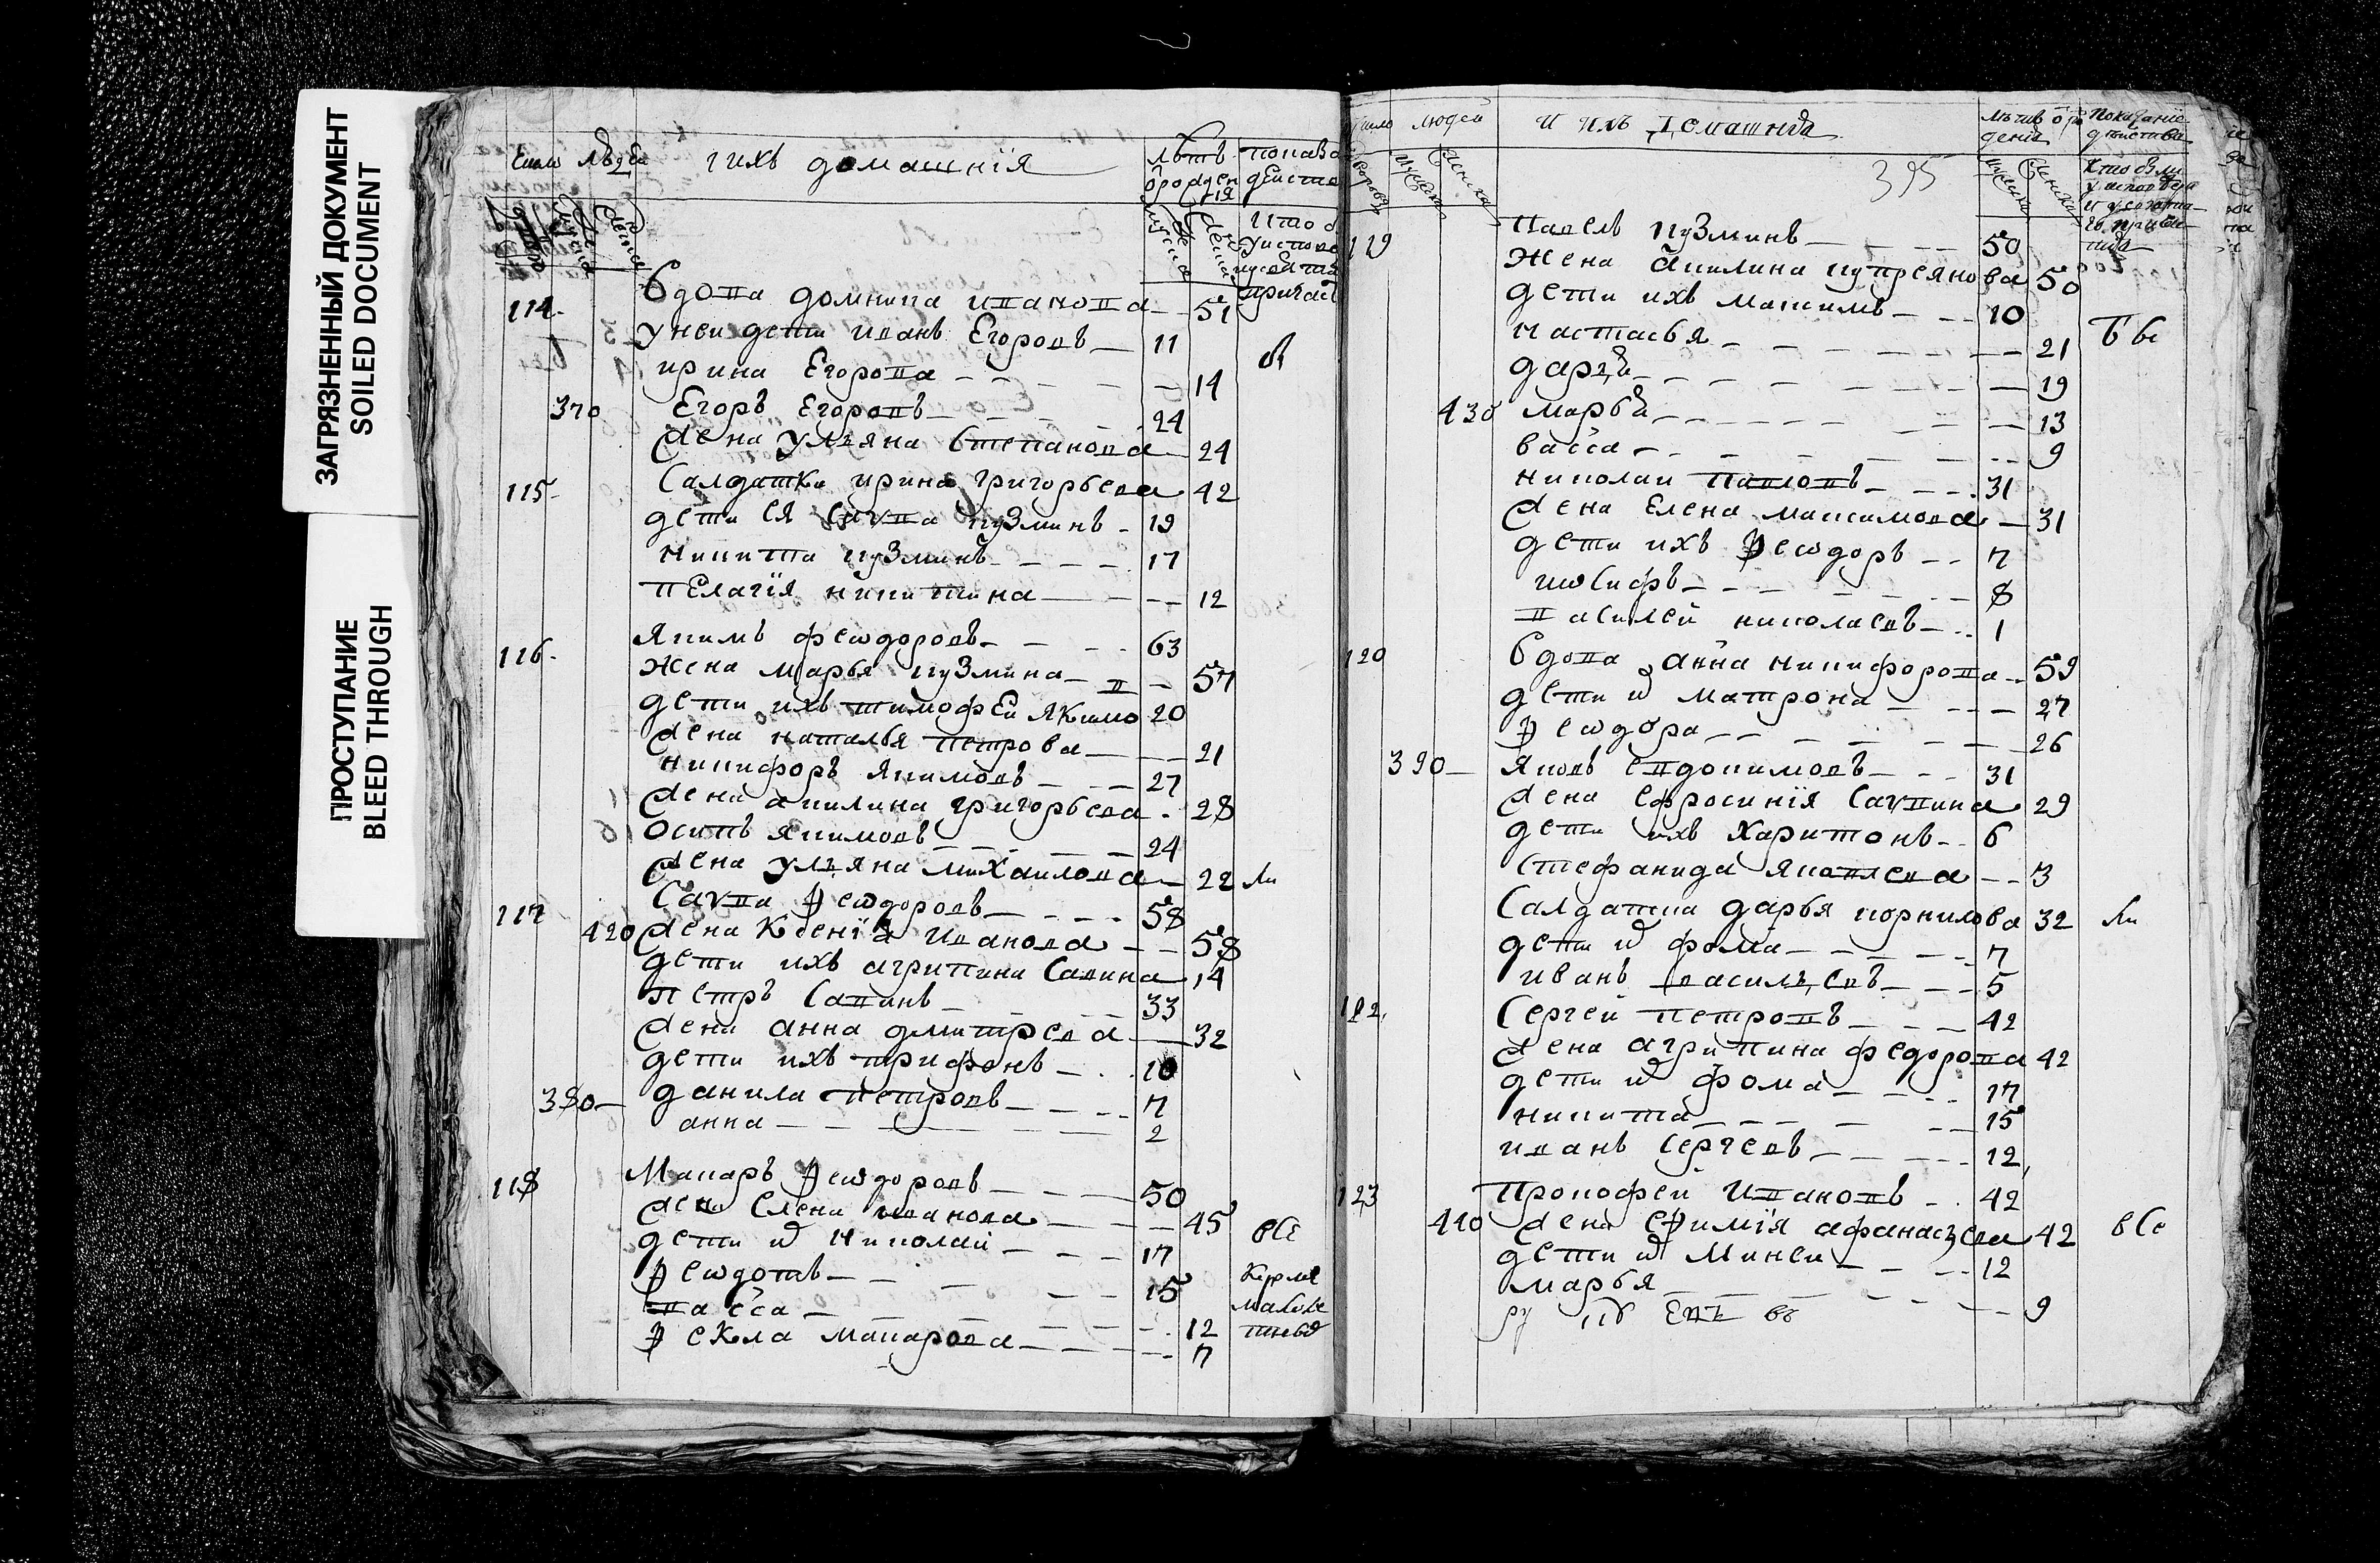 ЗАГРЯЗНЕННЫЙ ДОКУМЕНТ
SOILED DOCUMENT
ПРОСТУПАНИЕ
BLEED THROUGH
число людей
ихъ домашнїя
лѣтъ
114. Вдова домника иванова 51
у неи дети иванъ Егоровъ 11
ирина Егорова 14
370 Егоръ Егоровъ 24
жена ульяна степанова 24
115. Салдатка ирина григорьева 42
дети ея савва кузминъ 19
никита кузминъ 17
пелагїя никитина 12
116. якимъ феѡдоровъ 63
жена марья кузмина 57
дети ихъ тимофеи якимо в 20
жена наталья петрова 21
никифоръ якимовъ 27
жена акилина григорьева 28
осипъ якимовъ 24
жена ульяна михаилова 22
117 савва феѡдоровъ 58
420 жена ксенїа иванова 58
дети ихъ агрипина савина 14
петръ савинъ 33
жена анна дмитрева 32
дети ихъ трифонъ 10
380 данила петровъ 7
анна 2
118 Макаръ феѡдоровъ 50
жена елена иванова 45
дети ѿ николай 17 всѣ
феѡдотъ 15
васса 12
фекла макарова 7
число людей
и ихъ домашнїя
395
119 павелъ кузминъ 50
жена акилина купреянова 50
дети ихъ максимъ 10
настасья 21
дарья 19
430 марья 13
васса 9
николаи павловъ 31
жена елена максимова 31
дети ихъ феѡдоръ 7
иѡсифъ 8
василей николаевъ 1
120 Вдова анна никифорова 59
дети ѿ матрона 27
феѡдора 26
390 яковъ евдокимовъ 31
жена ефросинїя саввина 29
дети ихъ харитонъ 6
стефанида яковлева 3
салдатка дарья корнилова 32
дети ѿ фома 7
иванъ васильевъ 5
122. Сергей петровъ 42
жена агрипина федорова 42
дети ѿ фома 17
никита 15
иванъ сергеевъ 12
123 прокофеи ивановъ 42
440 жена ефимїя афанасьева 42 все
дети ѿ минеи 12
марья 9